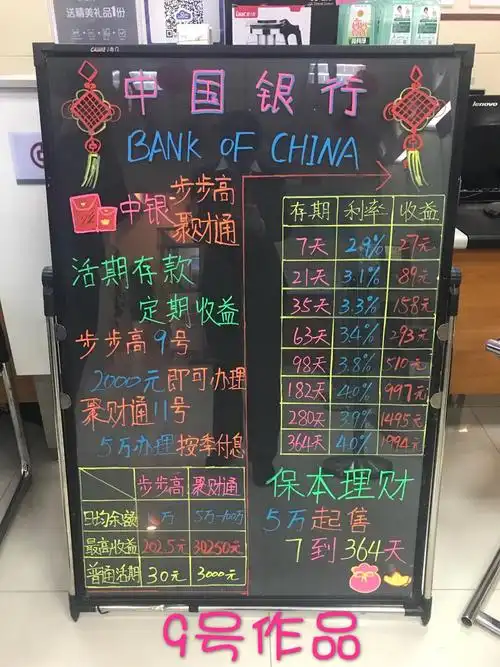 送精美礼品1份
lenovo
中国银行
BANK OF CHINA
中银 步步高
聚财通
活期存款
定期收益
步步高9号
2000元即可办理
聚财通11号
5万办理按季付息
步步高 聚财通
日均余额 万 5万-100万
最高收益 202.5元 30250元
普通活期 30元 3000元
存期 利率 收益
7天 2.9% 27元
21天 3.1% 89元
35天 3.3% 158元
63天 3.4% 293元
98天 3.8% 510元
182天 4.0% 997元
280天 3.9% 1495元
364天 4.0% 1994元
保本理财
5万起售
7到364天
9号作品